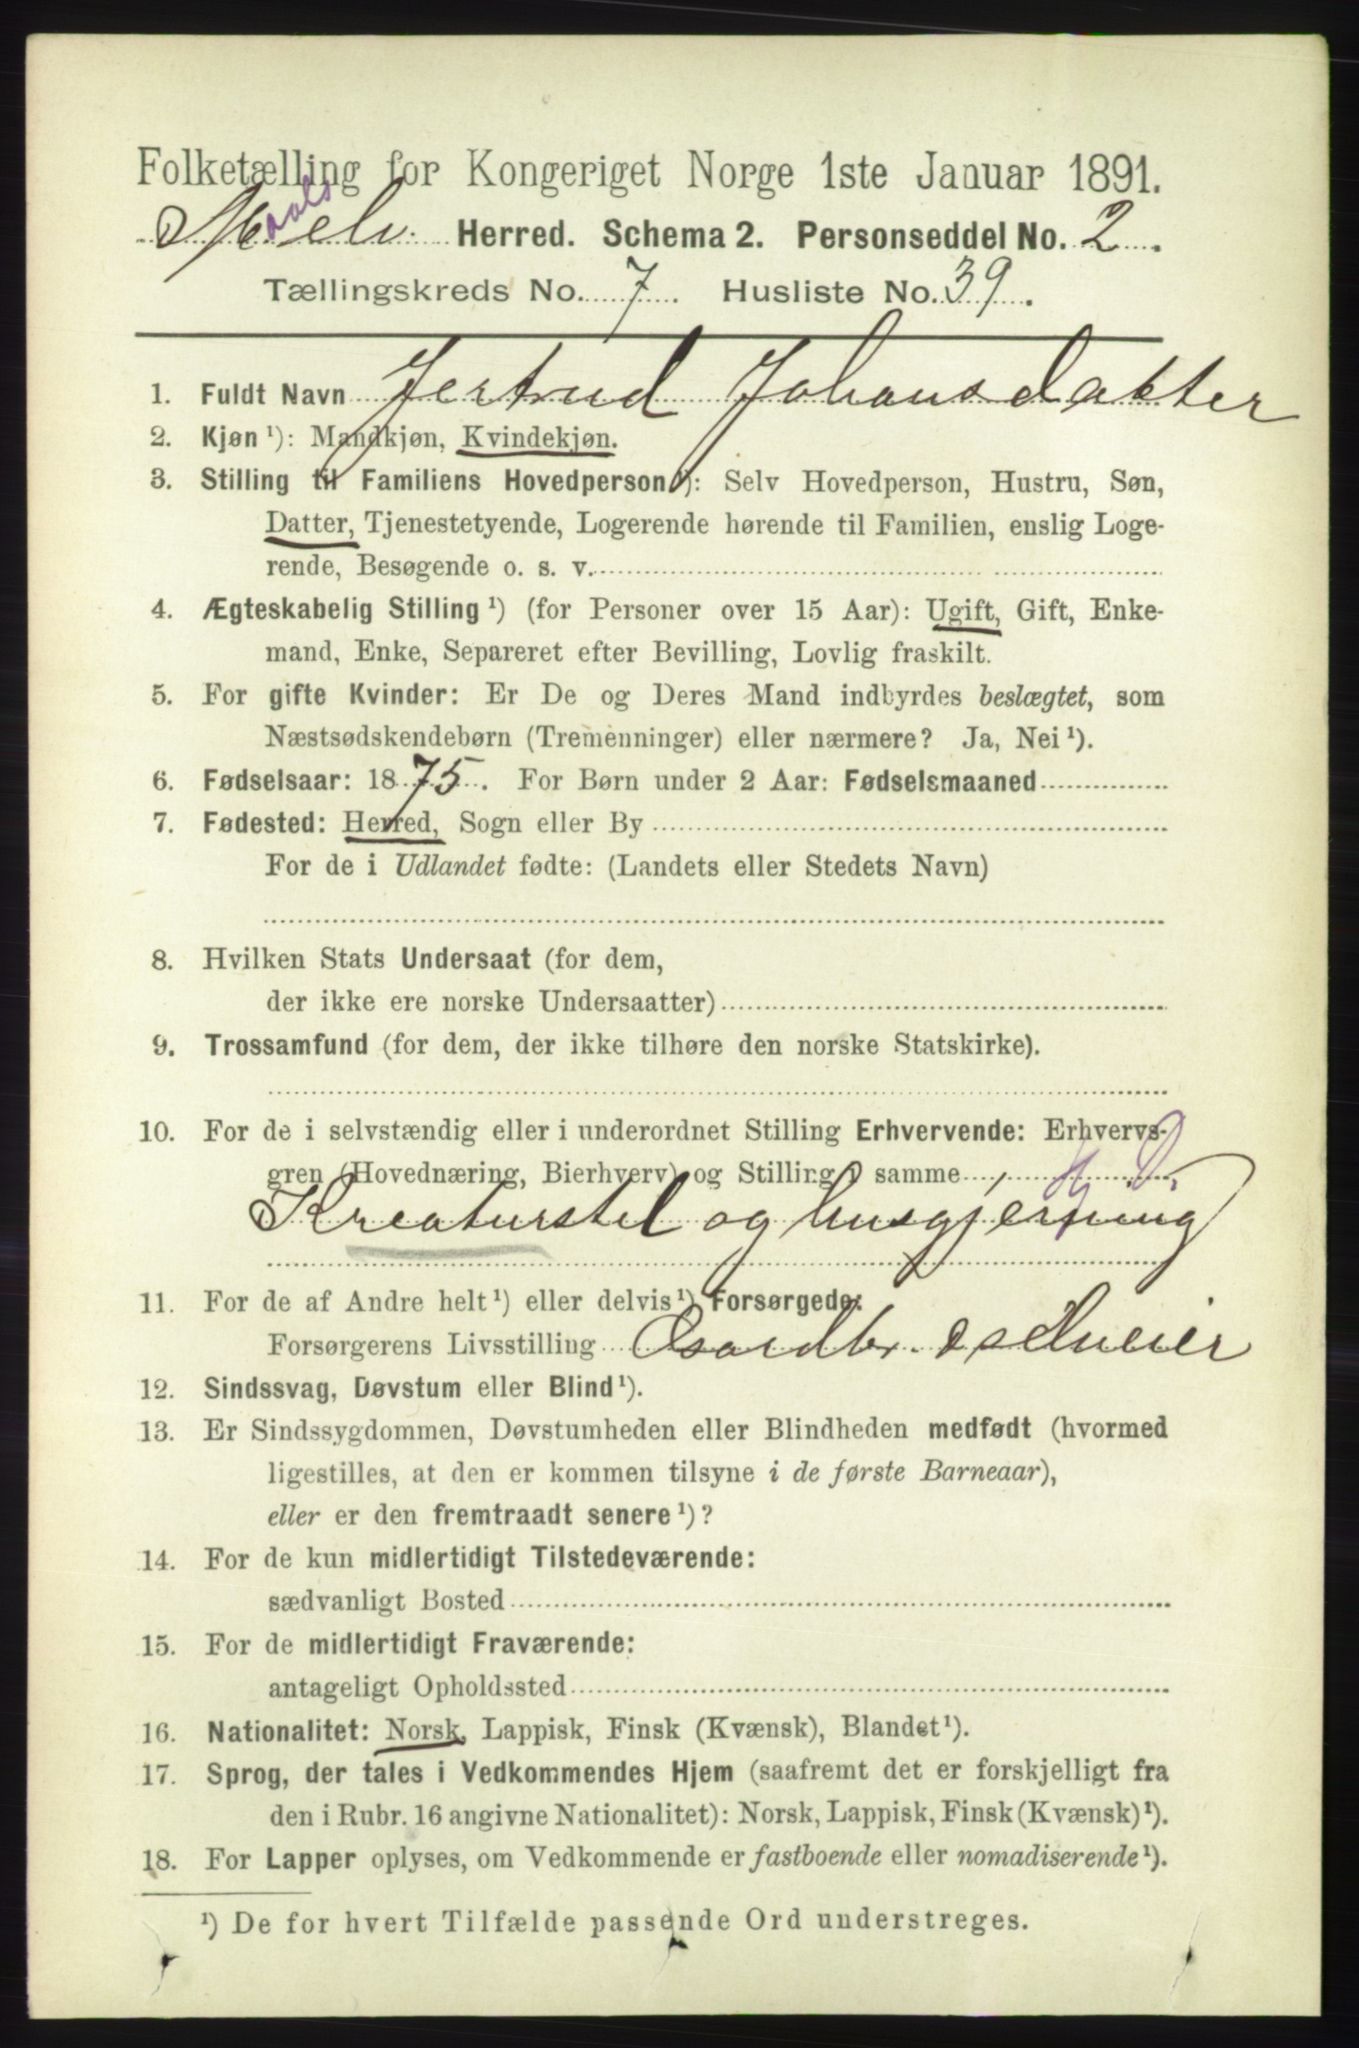 Folketælling for Kongeriget Norge 1ste Januar 1891.
Herred. Schema 2. Personseddel No. 2.
Tællingskreds No. 7. Husliste No. 39.
1. Fuldt Navn Jertrud Johansdatter
2. Kjøn ¹): Mandkjøn, Kvindekjøn.
3. Stilling til Familiens Hovedperson ¹): Selv Hovedperson, Hustru, Søn,
Datter, Tjenestetyende, Logerende hørende til Familien, enslig Loge-
rende, Besøgende o. s. v.
4. Ægteskabelig Stilling ¹) (for Personer over 15 Aar): Ugift, Gift, Enke-
mand, Enke, Separeret efter Bevilling, Lovlig fraskilt.
5. For gifte Kvinder: Er De og Deres Mand indbyrdes beslægtet, som
Næstsødskendebørn (Tremenninger) eller nærmere? Ja, Nei ¹).
6. Fødselsaar: 1875. For Børn under 2 Aar: Fødselsmaaned
7. Fødested: Herred, Sogn eller By
For de i Udlandet fødte: (Landets eller Stedets Navn)
8. Hvilken Stats Undersaat (for dem,
der ikke ere norske Undersaatter)
9. Trossamfund (for dem, der ikke tilhøre den norske Statskirke).
10. For de i selvstændig eller i underordnet Stilling Erhvervende: Erhvervs-
gren (Hovednæring, Bierhverv) og Stilling i samme
Kreaturstel og husgjerning
11. For de af Andre helt ¹) eller delvis ¹) Forsørgede:
Forsørgerens Livsstilling
12. Sindssvag, Døvstum eller Blind ¹).
13. Er Sindssygdommen, Døvstumheden eller Blindheden medfødt (hvormed
ligestilles, at den er kommen tilsyne i de første Barneaar),
eller er den fremtraadt senere ¹)?
14. For de kun midlertidigt Tilstedeværende:
sædvanligt Bosted
15. For de midlertidigt Fraværende:
antageligt Opholdssted
16. Nationalitet: Norsk, Lappisk, Finsk (Kvænsk), Blandet ¹).
17. Sprog, der tales i Vedkommendes Hjem (saafremt det er forskjelligt fra
den i Rubr. 16 angivne Nationalitet): Norsk, Lappisk, Finsk (Kvænsk) ¹).
18. For Lapper oplyses, om Vedkommende er fastboende eller nomadiserende ¹).
¹) De for hvert Tilfælde passende Ord understreges.